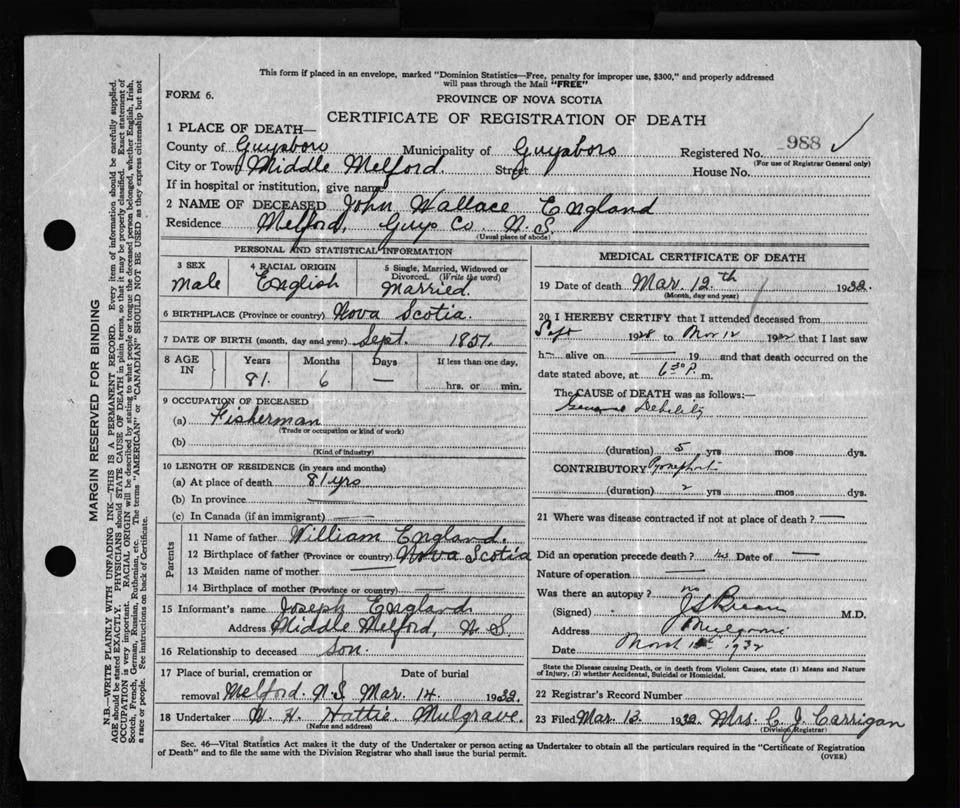 This form if placed in an envelope, marked "Dominion Statistics—Free, penalty for improper use, $300," and properly addressed
will pass through the Mail "FREE"
FORM 6.
PROVINCE OF NOVA SCOTIA
CERTIFICATE OF REGISTRATION OF DEATH
1 PLACE OF DEATH—
County of Guysboro Municipality of Guysboro Registered No. 988
(For use of Registrar General only)
City or Town Middle Melford. Street House No.
If in hospital or institution, give name
2 NAME OF DECEASED John Wallace England
Residence Melford, Guys Co. N.S.
(Usual place of abode)
PERSONAL AND STATISTICAL INFORMATION
3 SEX
Male
4 RACIAL ORIGIN
English
5 Single, Married, Widowed or
Divorced. (Write the word)
Married.
6 BIRTHPLACE (Province or country) Nova Scotia.
7 DATE OF BIRTH (month, day and year) Sept. 1851.
8 AGE
IN
Years Months Days If less than one day,
81. 6 — hrs. or min.
9 OCCUPATION OF DECEASED
(a) Fisherman
(Trade or occupation or kind of work)
(b)
(Kind of industry)
10 LENGTH OF RESIDENCE (in years and months)
(a) At place of death 81 yrs
(b) In province —
(c) In Canada (if an immigrant) —
Parents
11 Name of father William England.
12 Birthplace of father (Province or country) Nova Scotia
13 Maiden name of mother —
14 Birthplace of mother (Province or country) —
15 Informant's name Joseph England
Address Middle Melford, N.S.
16 Relationship to deceased Son.
17 Place of burial, cremation or Date of burial
removal Melford. N.S. Mar. 14. 1932
18 Undertaker W. H. Hattie. Mulgrave.
(Name and address)
MEDICAL CERTIFICATE OF DEATH
19 Date of death Mar. 12.th 1932.
(Month, day and year)
20 I HEREBY CERTIFY that I attended deceased from
Sept 1928 to Mar 12 1932 that I last saw
h— alive on — 19 and that death occurred on the
date stated above, at 6 30 P. m.
The CAUSE of DEATH was as follows:—
General Debility
(duration) 5 yrs mos dys.
CONTRIBUTORY
(duration) 2 yrs mos dys.
21 Where was disease contracted if not at place of death? —
Did an operation precede death? no Date of —
Nature of operation —
Was there an autopsy? no
(Signed) M.D.
Address Mulgrave
Date March 1932
State the Disease causing Death, or in death from Violent Causes, state (1) Means and Nature
of Injury, (2) whether Accidental, Suicidal or Homicidal.
22 Registrar's Record Number
23 Filed Mar. 13. 1932. Mrs. C. J. Carrigan
(Division Registrar)
Sec. 46—Vital Statistics Act makes it the duty of the Undertaker or person acting as Undertaker to obtain all the particulars required in the "Certificate of Registration
of Death" and to file the same with the Division Registrar who shall issue the burial permit.
(OVER)
MARGIN RESERVED FOR BINDING
N.B.—WRITE PLAINLY WITH UNFADING INK—THIS IS A PERMANENT RECORD. Every item of information should be carefully supplied.
AGE should be stated EXACTLY. PHYSICIANS should STATE CAUSE OF DEATH in plain terms, so that it may be properly classified. Exact statement of
OCCUPATION is very important. RACIAL ORIGIN will be described by stating to what people or tongue the deceased person belonged, whether English, Irish,
Scotch, French, German, Russian, Ruthenian, etc. The terms "AMERICAN" or "CANADIAN" SHOULD NOT BE USED as they express citizenship but not
a race or people. See instructions on back of Certificate.